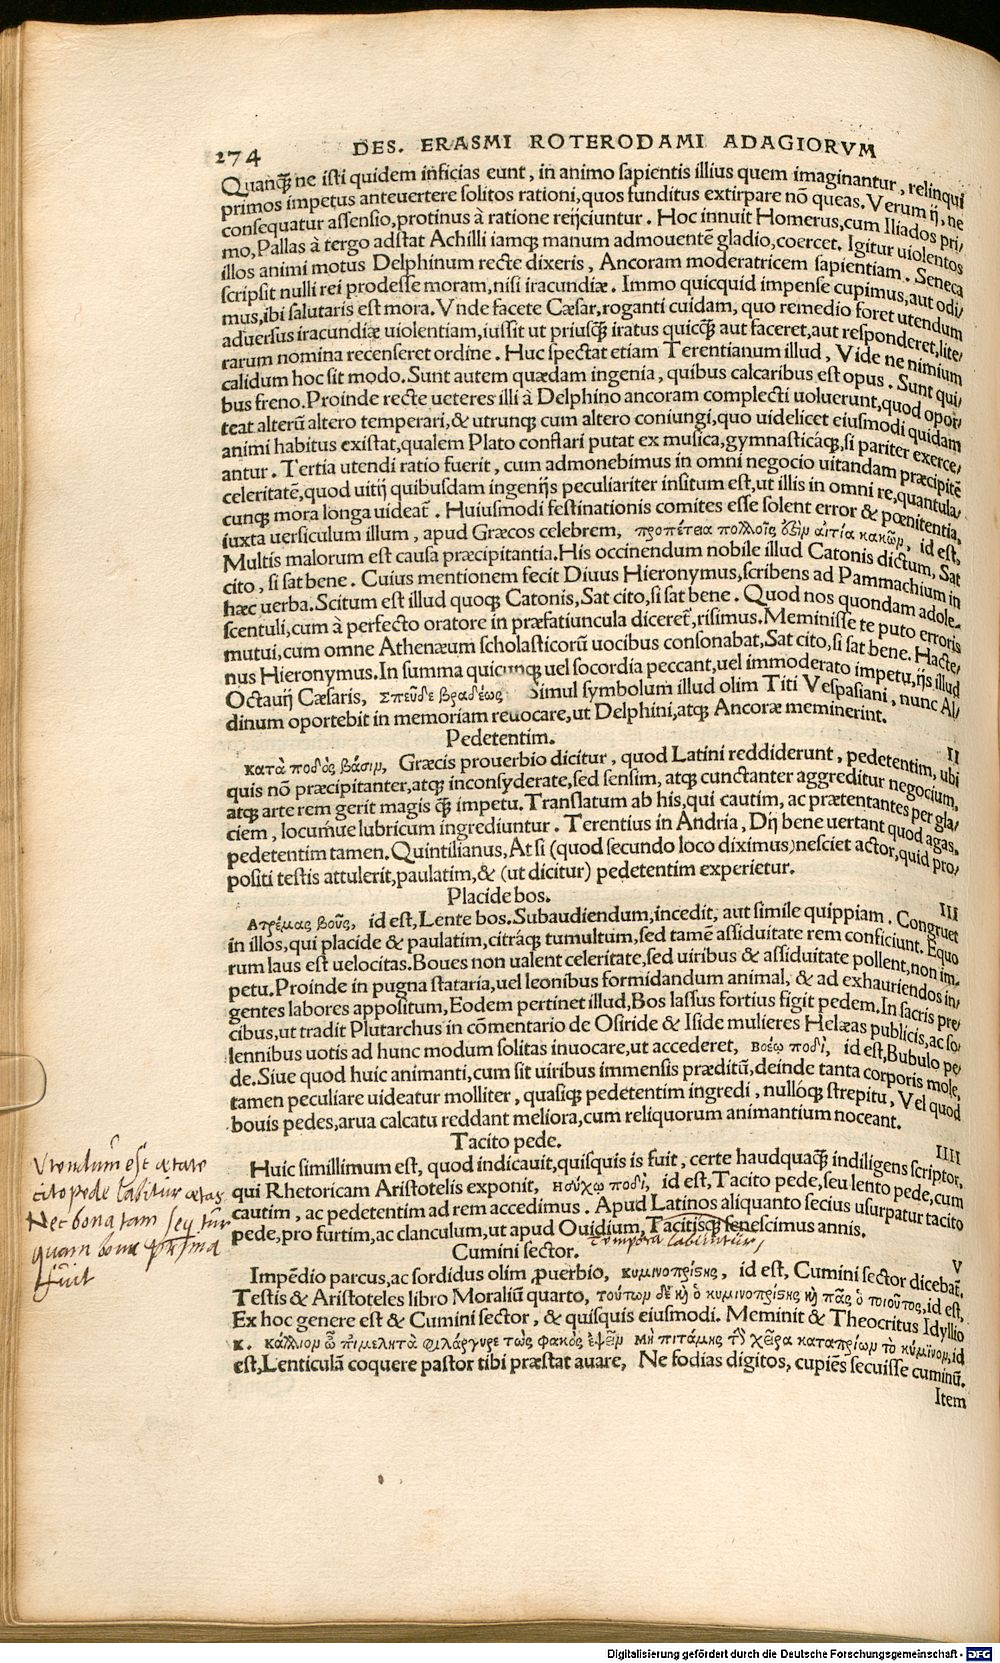 274 DES. ERASMI ROTERODAMI ADAGIORVM
Quanq̃ ne isti quidem inficias eunt, in animo sapientis illius quem imaginantur, relinqui
primos impetus anteuertere solitos rationi, quos funditus extirpare nõ queas. Verum ij, ne
consequatur assensio, protinus à ratione reijciuntur. Hoc innuit Homerus, cum Iliados pri/
mo, Pallas à tergo adstat Achilli iamq; manum admouentẽ gladio, coercet. Igitur uiolentos
illos animi motus Delphinum recte dixeris, Ancoram moderatricem sapientiam. Seneca
scripsit nulli rei prodesse moram, nisi iracundiæ. Immo quicquid impense cupimus, aut odi/
mus, ibi salutaris est mora. Vnde facete Cæsar, roganti cuidam, quo remedio foret utendum
aduersus iracundiæ uiolentiam, iussit ut priusq̃ iratus quicq̃ aut faceret, aut responderet, lite/
rarum nomina recenseret ordine. Huc spectat etiam Terentianum illud, Vide ne nimium
calidum hoc sit modo. Sunt autem quædam ingenia, quibus calcaribus est opus. Sunt qui/
bus freno. Proinde recte ueteres illi à Delphino ancoram complecti uoluerunt, quod opor/
teat alterũ altero temperari, & utrunq; cum altero coniungi, quo uidelicet eiusmodi quidam
animi habitus existat, qualem Plato conflari putat ex musica, gymnasticáq;, si pariter exerce/
antur. Tertia utendi ratio fuerit, cum admonebimus in omni negocio uitandam præcipitẽ
celeritatẽ, quod uitij quibusdam ingenijs peculiariter insitum est, ut illis in omni re, quantula/
cunq; mora longa uideat̃. Huiusmodi festinationis comites esse solent error & pœnitentia,
iuxta uersiculum illum, apud Græcos celebrem, προπέτεια πολλοῖς ὅξιμ αἰτία κακῶμ, id est,
Multis malorum est causa præcipitantia. His occinendum nobile illud Catonis dictum, Sat
cito, si sat bene. Cuius mentionem fecit Diuus Hieronymus, scribens ad Pammachium in
hæc uerba. Scitum est illud quoq; Catonis, Sat cito, si sat bene. Quod nos quondam adole-
scentuli, cum à perfecto oratore in præfatiuncula diceret̃, risimus. Meminisse te puto erroris
mutui, cum omne Athenæum scholasticorũ uocibus consonabat, Sat cito, si sat bene. Hacte/
nus Hieronymus. In summa quicunq; uel socordia peccant, uel immoderato impetu, ijs illud
Octauij Cæsaris, σπεῦδε βραδέως Simul symbolum illud olim Titi Vespasiani, nunc Al/
dinum oportebit in memoriam reuocare, ut Delphini, atq; Ancoræ meminerint.
Pedetentim. II
κατὰ ποδὸς βάσιμ, Græcis prouerbio dicitur, quod Latini reddiderunt, pedetentim, ubi
quis nõ præcipitanter, atq; inconsyderate, sed sensim, atq; cunctanter aggreditur negocium,
atq; arte rem gerit magis q̃ impetu. Translatum ab his, qui cautim, ac prætentantes per gla/
ciem, locumue lubricum ingrediuntur. Terentius in Andria, Dij bene uertant quod agas,
pedetentim tamen. Quintilianus, At si (quod secundo loco diximus) nesciet actor, quid pro/
positi testis attulerit, paulatim, & (ut dicitur) pedetentim experietur.
Placide bos. III
Ατρέμας βοῦς, id est, Lente bos. Subaudiendum, incedit, aut simile quippiam. Congruet
in illos, qui placide & paulatim, citráq; tumultum, sed tamẽ assiduitate rem conficiunt. Equo
rum laus est uelocitas. Boues non ualent celeritate, sed uiribus & assiduitate pollent, non im-
petu. Proinde in pugna stataria, uel leonibus formidandum animal, & ad exhauriendos in/
gentes labores appositum, Eodem pertinet illud, Bos lassus fortius figit pedem. In sacris pre/
cibus, ut tradit Plutarchus in cõmentario de Osiride & Iside mulieres Helæas publicis, ac so/
lennibus uotis ad hunc modum solitas inuocare, ut accederet, βοέῳ ποδὶ, id est, Bubulo pe/
de. Siue quod huic animanti, cum sit uiribus immensis præditũ, deinde tanta corporis mole,
tamen peculiare uideatur molliter, quasiq; pedetentim ingredi, nullóq; strepitu, Vel quod
bouis pedes, arua calcatu reddant meliora, cum reliquorum animantium noceant.
Tacito pede. IIII
Huic simillimum est, quod indicauit, quisquis is fuit, certe haudquaq̃ indiligens scriptor,
qui Rhetoricam Aristotelis exponit, ἡσύχῳ ποδὶ, id est, Tacito pede, seu lento pede, cum
cautim, ac pedetentim ad rem accedimus. Apud Latinos aliquanto secius usurpatur tacito
pede, pro furtim, ac clanculum, ut apud Ouidium, Tacitisq; senescimus annis.
tempora labuntur,
Vtendum est ætate
cito pede labitur ætas
Nec bona tam sequitur
quam bona prima
fuit
Cumini sector. V
Impẽdio parcus, ac sordidus olim ꝓuerbio, κυμινοπρίστης, id est, Cumini sector dicebat̃.
Testis & Aristoteles libro Moraliũ quarto, τούτωμ δὲ κὴ ὁ κυμινοπρίστης κὴ πᾶς ὁ τοιοῦτος, id est,
Ex hoc genere est & Cumini sector, & quisquis eiusmodi. Meminit & Theocritus Idyllio
κ. κάλλιομ ὦ πιμελητὰ φιλάργυρε τὼς φακὸς ἕψειμ μὴ πιτάμης τὴν χεῖρα καταπρίωμ τὸ κύμινομ, id
est, Lenticulã coquere pastor tibi præstat auare, Ne fodias digitos, cupiẽs secuisse cuminũ.
Item
Digitalisierung gefördert durch die Deutsche Forschungsgemeinschaft - DFG